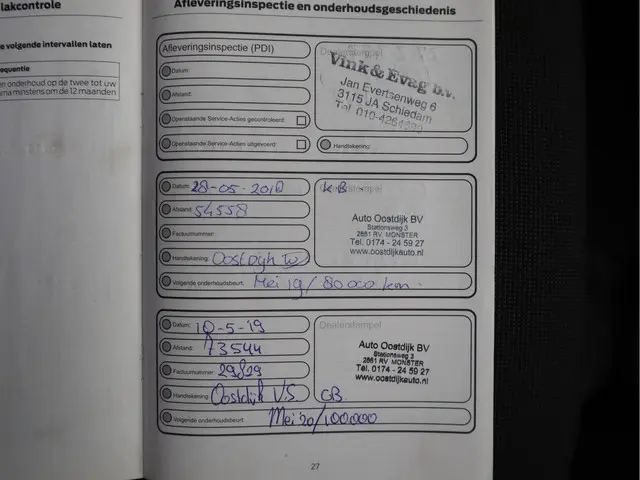 lakcontrole
e volgende intervallen laten
equentie
en onderhoud op de twee tot uw
ema minstens om de 12 maanden
Afleveringsinspectie en onderhoudsgeschiedenis
Afleveringsinspectie (PDI)
Datum:
Afstand:
Openstaande Service-Acties gecontroleerd:
Openstaande Service-Acties uitgevoerd:
Dealerstempel
Vink & Evag b.v.
Jan Evertsenweg 6
3115 JA Schiedam
Tel. 010-4264
Handtekening:
Datum: 28-05-2018
Afstand: 54558
Factuurnummer:
Handtekening:
Volgende onderhoudsbeurt: Mei 19/80000 km.
Dealerstempel
KB
Auto Oostdijk BV
Stationsweg 3
2681 RV MONSTER
Tel. 0174 - 24 59 27
www.oostdijkauto.nl
Datum: 10-5-19
Afstand: 73544
Factuurnummer: 29829
Handtekening: Oostdijk V.S.
Volgende onderhoudsbeurt: Mei 20/100000
Dealerstempel
Auto Oostdijk BV
Stationsweg 3
2681 RV MONSTER
Tel. 0174 - 24 59 27
www.oostdijkauto.nl
GB
27